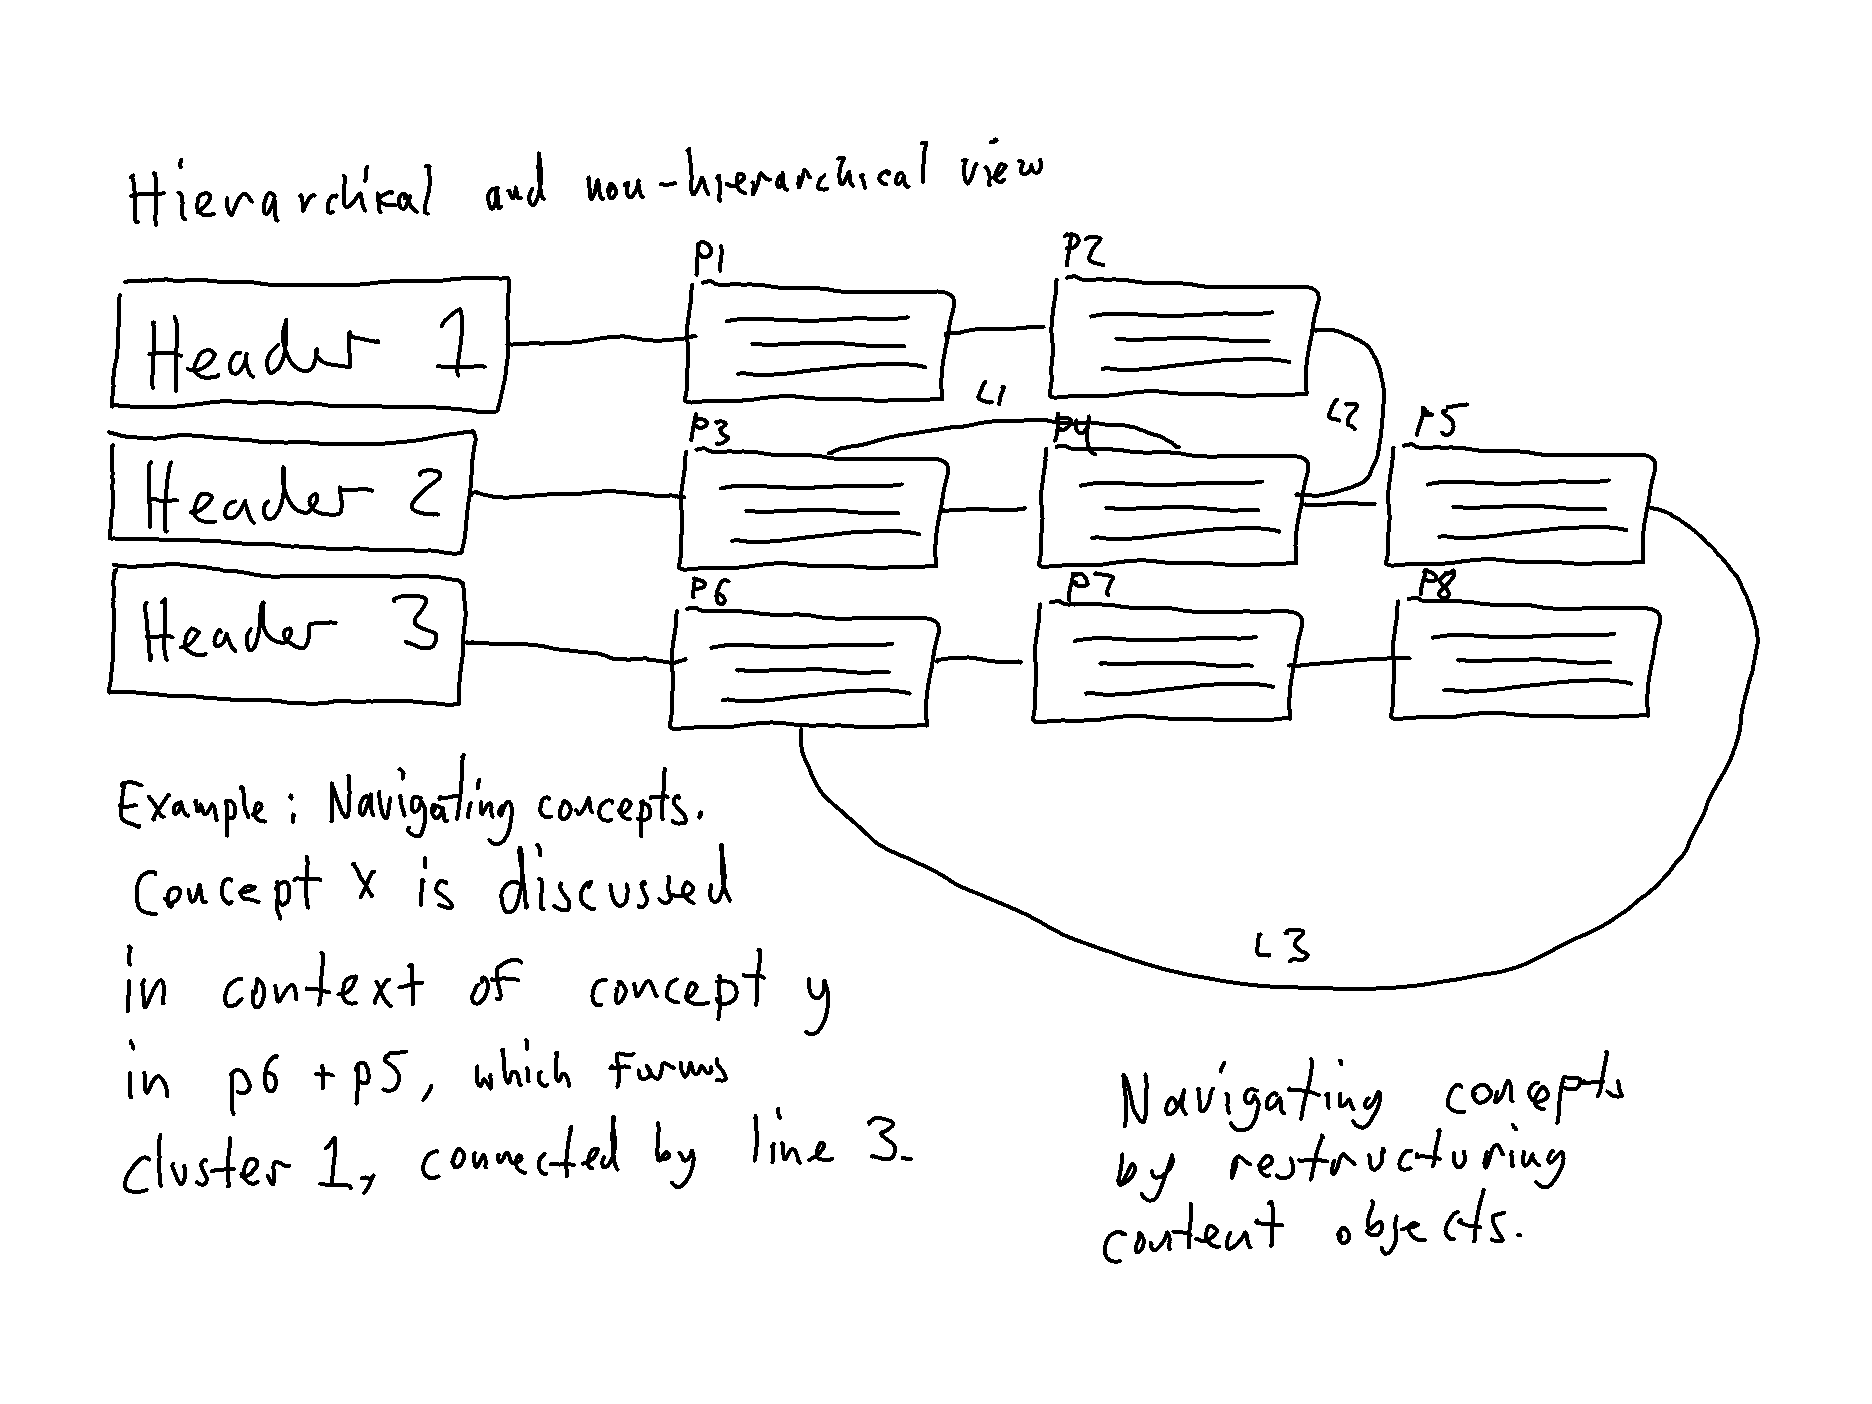 Hierarchical and non-hierarchical view
P1 P2
Header 1
L1 L2
P3 P4 P5
Header 2
P6 P7 P8
Header 3
Example: Navigating concepts.
Concept X is discussed
in context of concept y
in p6 + p5, which forms
cluster 1, connected by line 3.
L3
Navigating concepts
by restructuring
content objects.